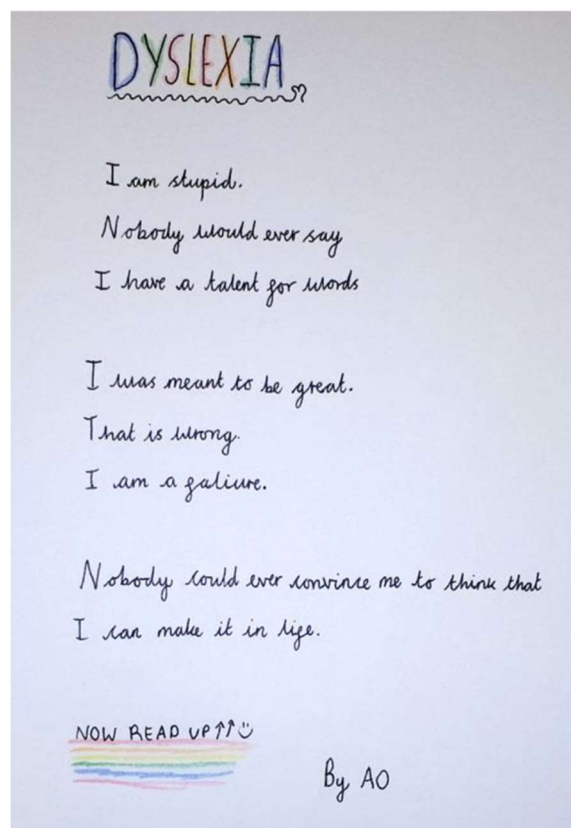 DYSLEXIA
I am stupid.
Nobody would ever say
I have a talent for words
I was meant to be great.
That is wrong.
I am a faliure.
Nobody could ever convince me to think that
I can make it in life.
NOW READ UP ↑↑ :)
By AO